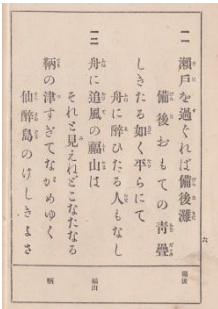 一一 瀬戸を過ぐれば備後灘
備後おもての青疊
しきたる如く平らにて
舟に醉ひたる人もなし
一二 舟に追風の福山は
それと見えねどこなたなる
鞆の津すぎてながめゆく
仙醉島のけしきよさ
六
備後
福山
鞆